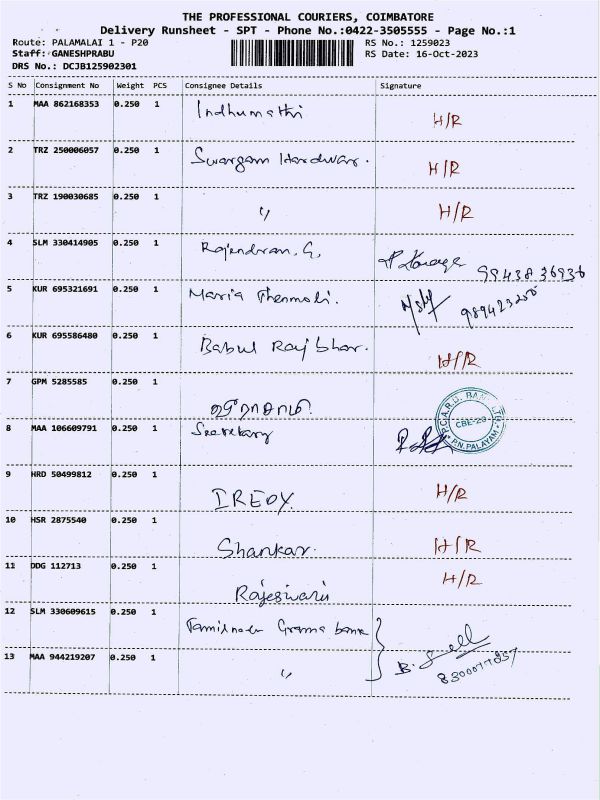 THE PROFESSIONAL COURIERS, COIMBATORE
Delivery Runsheet - SPT - Phone No.:0422-3505555 - Page No.:1
Route: PALAMALAI 1 - P20 RS No.: 1259023
Staff: GANESHPRABU RS Date: 16-Oct-2023
DRS No.: DCJB125902301
S No Consignment No Weight PCS Consignee Details Signature
1 MAA 862168353 0.250 1 Indhumathi H/R
2 TRZ 250006057 0.250 1 Swargam Hardwar. H/R
3 TRZ 190030685 0.250 1 " H/R
4 SLM 330414905 0.250 1 Rajendran. G. 99438 36936
5 KUR 695321691 0.250 1 Maria Thenmoli.
6 KUR 695586480 0.250 1 Babul Rajbhar. H/R
7 GPM 5285585 0.250 1
8 MAA 106609791 0.250 1 Secretary
CBE-20
P.N. PALAYAM
9 HRD 50499812 0.250 1 IREDY H/R
10 HSR 2875540 0.250 1 Shankar. H/R
11 DDG 112713 0.250 1 Rajeswari H/R
12 SLM 330609615 0.250 1 Tamilnadu Grama bank
13 MAA 944219207 0.250 1 "